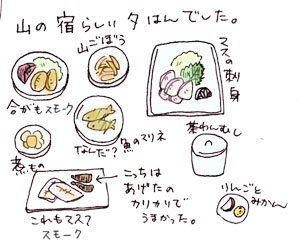 山の宿らしい夕はんでした。
山ごぼう
合がもスモーク
マスの刺身
なんだ?魚のマリネ
茶わんむし
煮もの
こっちは
あげたの
カリカリで
うまかった。
これもマスで
スモーク
りんごと
みかん